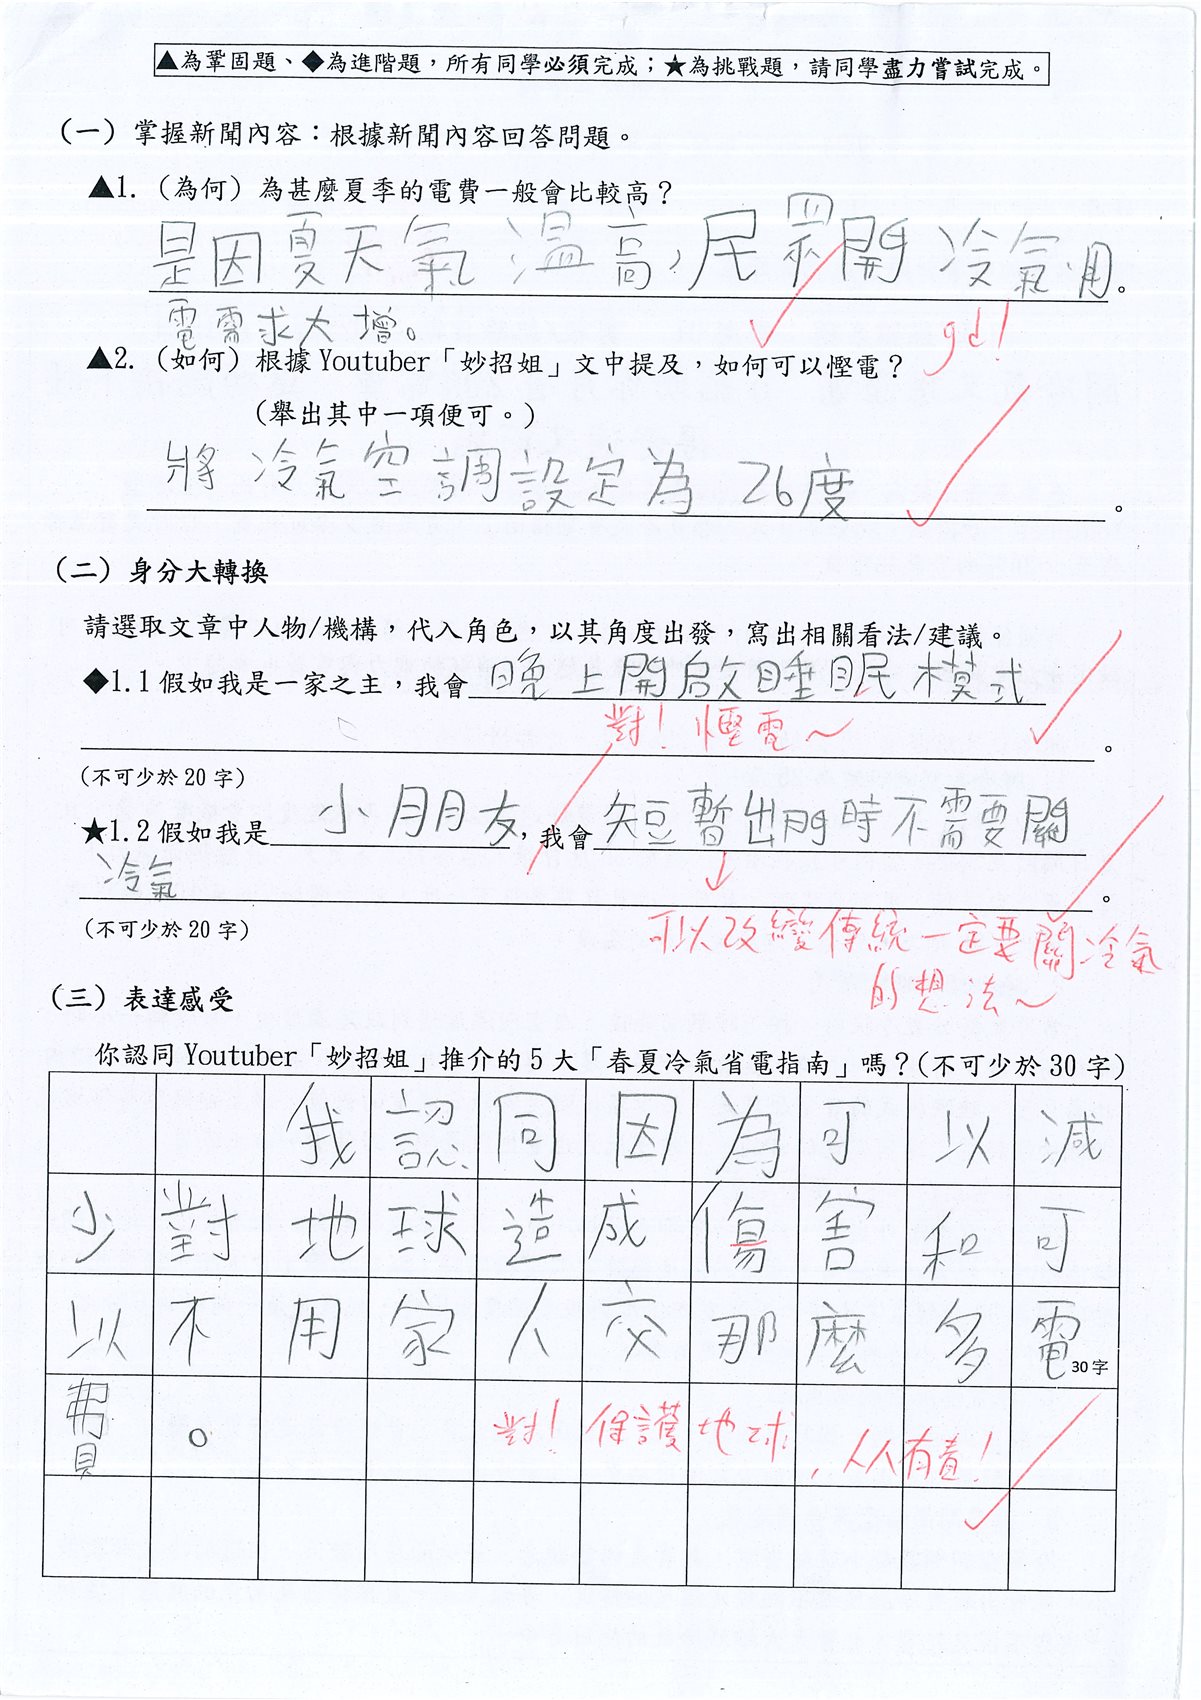 ▲為鞏固題、◆為進階題，所有同學必須完成；★為挑戰題，請同學盡力嘗試完成。
（一）掌握新聞內容：根據新聞內容回答問題。
▲1.（為何）為甚麼夏季的電費一般會比較高？
是因夏天氣溫高，民眾開冷氣用。
電需求大增。
gd!
▲2.（如何）根據 Youtuber「妙招姐」文中提及，如何可以慳電？
（舉出其中一項便可。）
將冷氣空調設定為26度。
（二）身分大轉換
請選取文章中人物/機構，代入角色，以其角度出發，寫出相關看法/建議。
◆1.1 假如我是一家之主，我會晚上開啟睡眠模式
對！慳電～
。
(不可少於 20 字)
★1.2 假如我是小朋友，我會短暫出門時不需要關
冷氣。
(不可少於 20 字)
可以改變傳統一定要關冷氣
的想法～
（三）表達感受
你認同 Youtuber「妙招姐」推介的 5 大「春夏冷氣省電指南」嗎？(不可少於 30 字)
我認同因為可以減
少對地球造成傷害和可
以不用家人交那麼多電
30 字
費。
對！保護地球，人人有責！